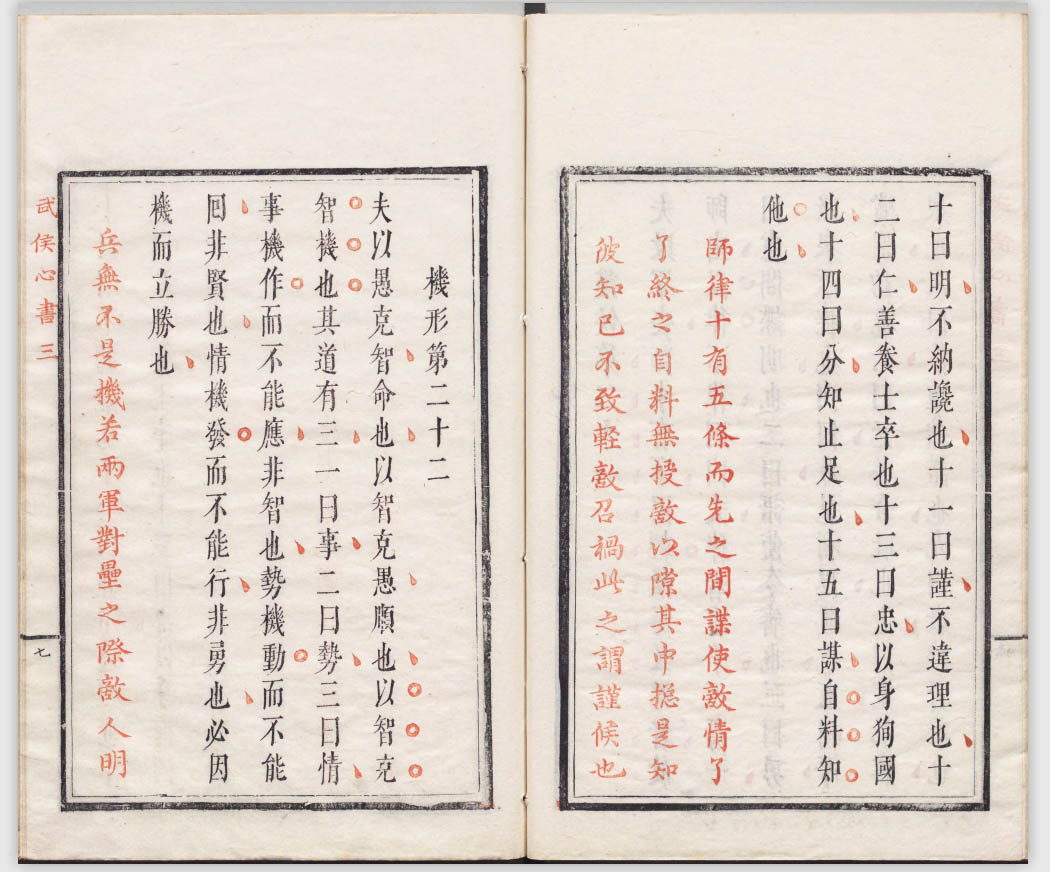 十曰明不納讒也十一曰謹不違理也十
二曰仁善養士卒也十三曰忠以身狥國
也十四曰分知止足也十五曰謀自料知
他也
師律十有五條而先之間諜使敵情了
了終之自料無授敵以隙其中揔是知
彼知已不致輕敵召禍此之謂謹候也
機形第二十二
夫以愚克智命也以智克愚順也以智克
智機也其道有三一曰事二曰勢三曰情
事機作而不能應非智也勢機動而不能
回非賢也情機發而不能行非勇也必因
機而立勝也
兵無不是機若兩軍對壘之際敵人明
武侯心書三
七